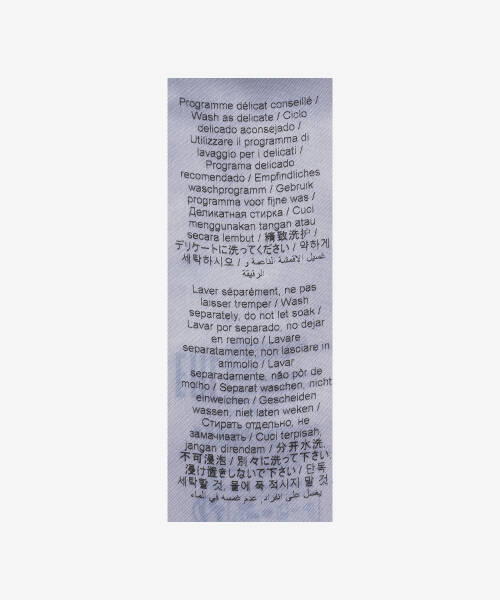 Programme délicat conseillé /
Wash as delicate / Ciclo
delicado aconsejado /
Utilizzare il programma di
lavaggio per i delicati /
Programa delicado
recomendado / Empfindliches
waschprogramm / Gebruik
programma voor fijne was /
Деликатная стирка / Cuci
menggunakan tangan atau
secara lembut / 精致洗护 /
デリケートに洗ってください / 약하게
세탁하시오 / غسيل الاقمشة الناعمة و
الرقيقة
Laver séparément, ne pas
laisser tremper / Wash
separately, do not let soak /
Lavar por separado, no dejar
en remojo / Lavare
separatamente, non lasciare in
ammollo / Lavar
separadamente, não pôr de
molho / Separat waschen, nicht
einweichen / Gescheiden
wassen, niet laten weken /
Стирать отдельно, не
замачивать / Cuci terpisah,
jangan direndam / 分开水洗,
不可浸泡 / 別々に洗って下さい,
浸け置きしないで下さい / 단독
세탁할 것, 물에 푹 적시지 말 것
يغسل على انفراد, عدم غمسه في الماء